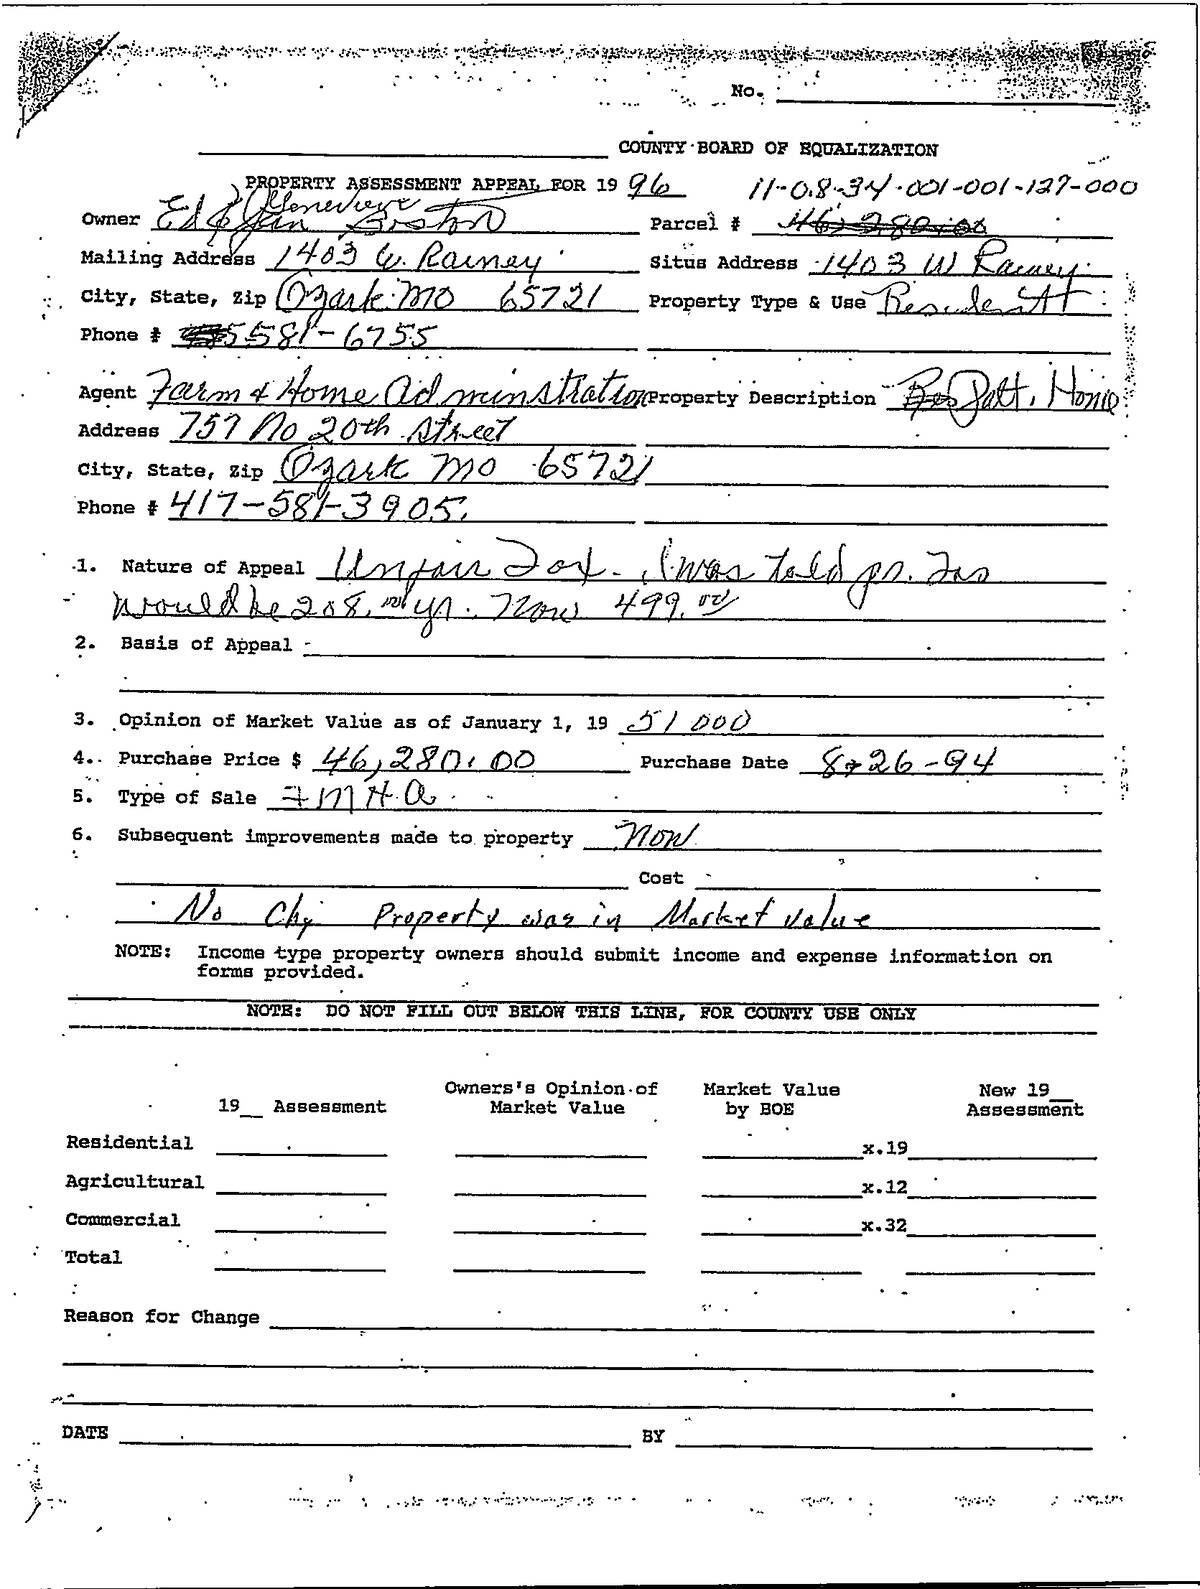 No.
COUNTY BOARD OF EQUALIZATION
PROPERTY ASSESSMENT APPEAL FOR 19 96 11-08-34-001-001-127-000
Genevieve
Owner Ed & Jen Boston Parcel # 46,280.00
Mailing Address 1403 W. Rainey Situs Address 1403 W Rainey
City, State, Zip Ozark MO 65721 Property Type & Use
Phone # 581-6755
Agent Farm & Home Adminstration Property Description Home
Address 757 No 20th Street
City, State, Zip Ozark MO 65721
Phone # 417-581-3905.
1. Nature of Appeal Unfair Tax - I was told pr. Tax
would be 208.00 yr. Now 499.00
2. Basis of Appeal
3. Opinion of Market Value as of January 1, 19 51 000
4. Purchase Price $ 46,280.00 Purchase Date 8-26-94
5. Type of Sale FMHA
6. Subsequent improvements made to property Non
Cost
No Chg Property was in Market Value
NOTE: Income type property owners should submit income and expense information on
forms provided.
NOTE: DO NOT FILL OUT BELOW THIS LINE, FOR COUNTY USE ONLY
Owners's Opinion of Market Value New 19__
19__ Assessment Market Value by BOE Assessment
Residential x.19
Agricultural x.12
Commercial x.32
Total
Reason for Change
DATE BY